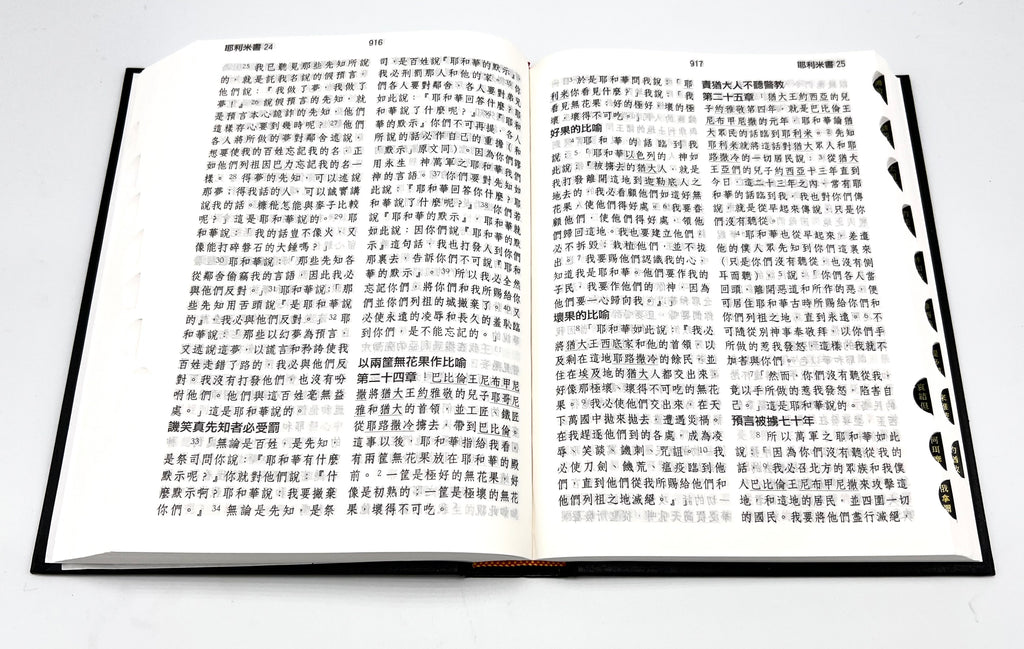 耶利米書 24
916
²⁵ 我已聽見那些先知所說
的，就是託我名說的假預言，
他們說：『我做了夢！我做了
夢！』²⁶ 說假預言的先知，就
是預言本心詭詐的先知，他們
這樣存心要到幾時呢？²⁷ 他們
各人將所做的夢對鄰舍述說，
想要使我的百姓忘記我的名，正
如他們列祖因巴力忘記我的名一
樣。²⁸ 得夢的先知，可以述說
那夢；得我話的人，可以誠實講
說我的話。糠秕怎能與麥子比較
呢？」這是耶和華說的。²⁹ 耶
和華說：「我的話豈不像火，又
像能打碎磐石的大錘嗎？」
³⁰ 耶和華說：「那些先知各
從鄰舍偷竊我的言語，因此我必
與他們反對。」³¹ 耶和華說：「那
些先知用舌頭說『是耶和華說
的』；我必與他們反對。」³² 耶
和華說：「那些以幻夢為預言，
又述說這夢，以謊言和矜誇使我
百姓走錯了路的，我必與他們反
對。我沒有打發他們，也沒有吩
咐他們。他們與這百姓毫無益
處。」這是耶和華說的。
譏笑真先知者必受罰
³³「無論是百姓，是先知，
是祭司問你說：『耶和華有什麼
默示呢？』你就對他們說：『什
麼默示啊？耶和華說：我要撇棄
你們。』³⁴ 無論是先知，是祭
司，是百姓說『耶和華的默示』，
我必刑罰那人和他的家。³⁵ 你們
各人要對鄰舍，各人要對弟兄
如此說：『耶和華回答什麼？耶
和華說了什麼呢？』³⁶『耶和華
的默示』你們不可再提，各人
所說的話必作自己的重擔（
「默示」原文同），因為你們謬
用永生　神萬軍之耶和華我們　神
的言語。³⁷ 你們要對先知如
此說：『耶和華回答你什麼？耶
和華說了什麼呢？』³⁸ 你們若
說『耶和華的默示』，耶和華就
如此說：因你們說『耶和華的默
示』這句話，我也打發人到你們
那裏去，告訴你們不可說『耶和
華的默示』。³⁹ 所以我必全然
忘記你們，將你們和我所賜給你
們並你們列祖的城撇棄了；⁴⁰ 又
必使永遠的凌辱和長久的羞恥臨
到你們，是不能忘記的。」
以兩筐無花果作比喻
第二十四章　巴比倫王尼布甲尼
撒將猶大王約雅敬的兒子耶哥尼
雅和猶大的首領，並工匠、鐵匠
從耶路撒冷擄去，帶到巴比倫。
這事以後，耶和華指給我看，
有兩筐無花果放在耶和華的殿
前。² 一筐是極好的無花果，好
像是初熟的；一筐是極壞的無花
果，壞得不可吃。
917
耶利米書 25
³ 於是耶和華問我說：「耶
利米你看見什麼？」我說：「我
看見無花果，好的極好，壞的極
壞，壞得不可吃。」
好果的比喻
⁴ 耶和華的話臨到我說：
⁵「耶和華以色列的　神如
此說：被擄去的猶大人，就是
我打發離開這地到迦勒底人之
地去的，我必看顧他們如這好無
花果，使他們得好處。⁶ 我要眷
顧他們，使他們得好處，領他
們歸回這地。我也要建立他們，
必不拆毀；栽植他們，並不拔
出。⁷ 我要賜他們認識我的心，
知道我是耶和華。他們要作我的
子民，我要作他們的　神，因為
他們要一心歸向我。」
壞果的比喻
⁸「耶和華如此說：『我必
將猶大王西底家和他的首領，以
及剩在這地耶路撒冷的餘民，並
住在埃及地的猶大人都交出來，
好像那極壞、壞得不可吃的無花
果。⁹ 我必使他們交出來，在天
下萬國中拋來拋去，遭遇災禍；
在我趕逐他們到的各處，成為凌
辱、笑談、譏刺、咒詛。¹⁰ 我
必使刀劍、饑荒、瘟疫臨到他
們，直到他們從我所賜給他們和
他們列祖之地滅絕。』」
責猶大人不聽警教
第二十五章　猶大王約西亞的兒
子約雅敬第四年，就是巴比倫王
尼布甲尼撒的元年，耶和華論猶
大眾民的話臨到耶利米。² 先知
耶利米就將這話對猶大眾人和耶
路撒冷的一切居民說：³「從猶大
王亞們的兒子約西亞十三年直到
今日，這二十三年之內，常有耶
和華的話臨到我，我也對你們傳
說，就是從早起來傳說，只是你
們沒有聽從。
⁴ 耶和華也從早起來，差遣
他的僕人眾先知到你們這裏來
（只是你們沒有聽從，也沒有側
耳而聽），⁵ 說：『你們各人當
回頭，離開惡道和所作的惡，便
可居住耶和華古時所賜給你們和
你們列祖之地，直到永遠。⁶ 不
可隨從別神事奉敬拜，以你們手
所做的惹我發怒；這樣，我就不
加害與你們。
⁷『然而，你們沒有聽從我，
竟以手所做的惹我發怒，陷害自
己。』這是耶和華說的。
預言被擄七十年
⁸「所以萬軍之耶和華如此
說：『因為你們沒有聽從我的
話，⁹ 我必召北方的眾族和我僕
人巴比倫王尼布甲尼撒來攻擊這
地，和這地的居民，並四圍一切
的國民。我要將他們盡行滅絕，